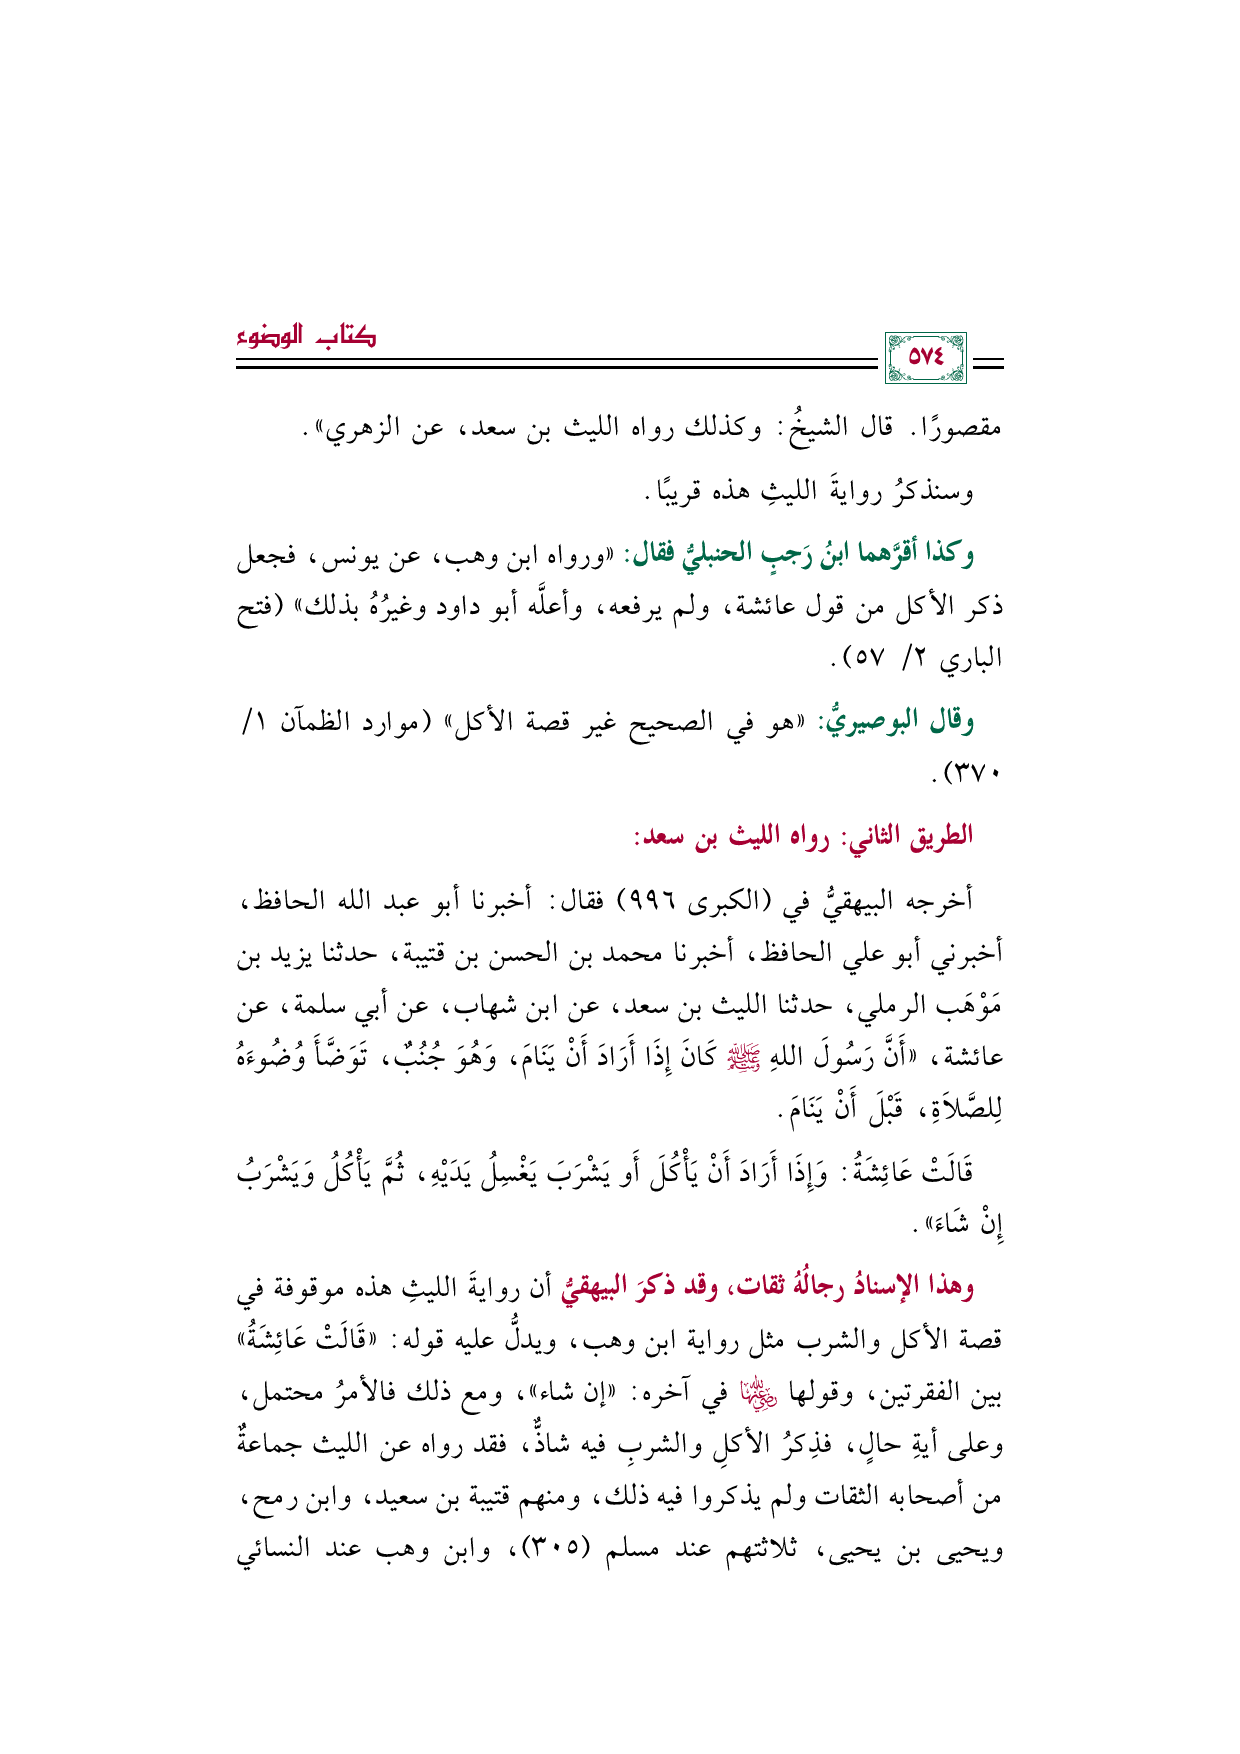 كتاب الوضوء
٥٧٤
مقصورًا. قال الشيخُ: وكذلك رواه الليث بن سعد، عن الزهري».
وسنذكرُ روايةَ الليثِ هذه قريبًا.
وكذا أقرَّهما ابنُ رَجبٍ الحنبليُّ فقال: «ورواه ابن وهب، عن يونس، فجعل
ذكر الأكل من قول عائشة، ولم يرفعه، وأعلَّه أبو داود وغيرُهُ بذلك» (فتح
الباري ٢/ ٥٧).
وقال البوصيريُّ: «هو في الصحيح غير قصة الأكل» (موارد الظمآن ١/
٣٧٠).
الطريق الثاني: رواه الليث بن سعد:
أخرجه البيهقيُّ في (الكبرى ٩٩٦) فقال: أخبرنا أبو عبد الله الحافظ،
أخبرني أبو علي الحافظ، أخبرنا محمد بن الحسن بن قتيبة، حدثنا يزيد بن
مَوْهَب الرملي، حدثنا الليث بن سعد، عن ابن شهاب، عن أبي سلمة، عن
عائشة، «أَنَّ رَسُولَ اللهِ ﷺ كَانَ إِذَا أَرَادَ أَنْ يَنَامَ، وَهُوَ جُنُبٌ، تَوَضَّأَ وُضُوءَهُ
لِلصَّلاَةِ، قَبْلَ أَنْ يَنَامَ.
قَالَتْ عَائِشَةُ: وَإِذَا أَرَادَ أَنْ يَأْكُلَ أَو يَشْرَبَ يَغْسِلُ يَدَيْهِ، ثُمَّ يَأْكُلُ وَيَشْرَبُ
إِنْ شَاءَ».
وهذا الإسنادُ رجالُهُ ثقات، وقد ذكرَ البيهقيُّ أن روايةَ الليثِ هذه موقوفة في
قصة الأكل والشرب مثل رواية ابن وهب، ويدلُّ عليه قوله: «قَالَتْ عَائِشَةُ»
بين الفقرتين، وقولها رضي الله عنها في آخره: «إن شاء»، ومع ذلك فالأمرُ محتمل،
وعلى أيةِ حالٍ، فذِكرُ الأكلِ والشربِ فيه شاذٌّ، فقد رواه عن الليث جماعةٌ
من أصحابه الثقات ولم يذكروا فيه ذلك، ومنهم قتيبة بن سعيد، وابن رمح،
ويحيى بن يحيى، ثلاثتهم عند مسلم (٣٠٥)، وابن وهب عند النسائي